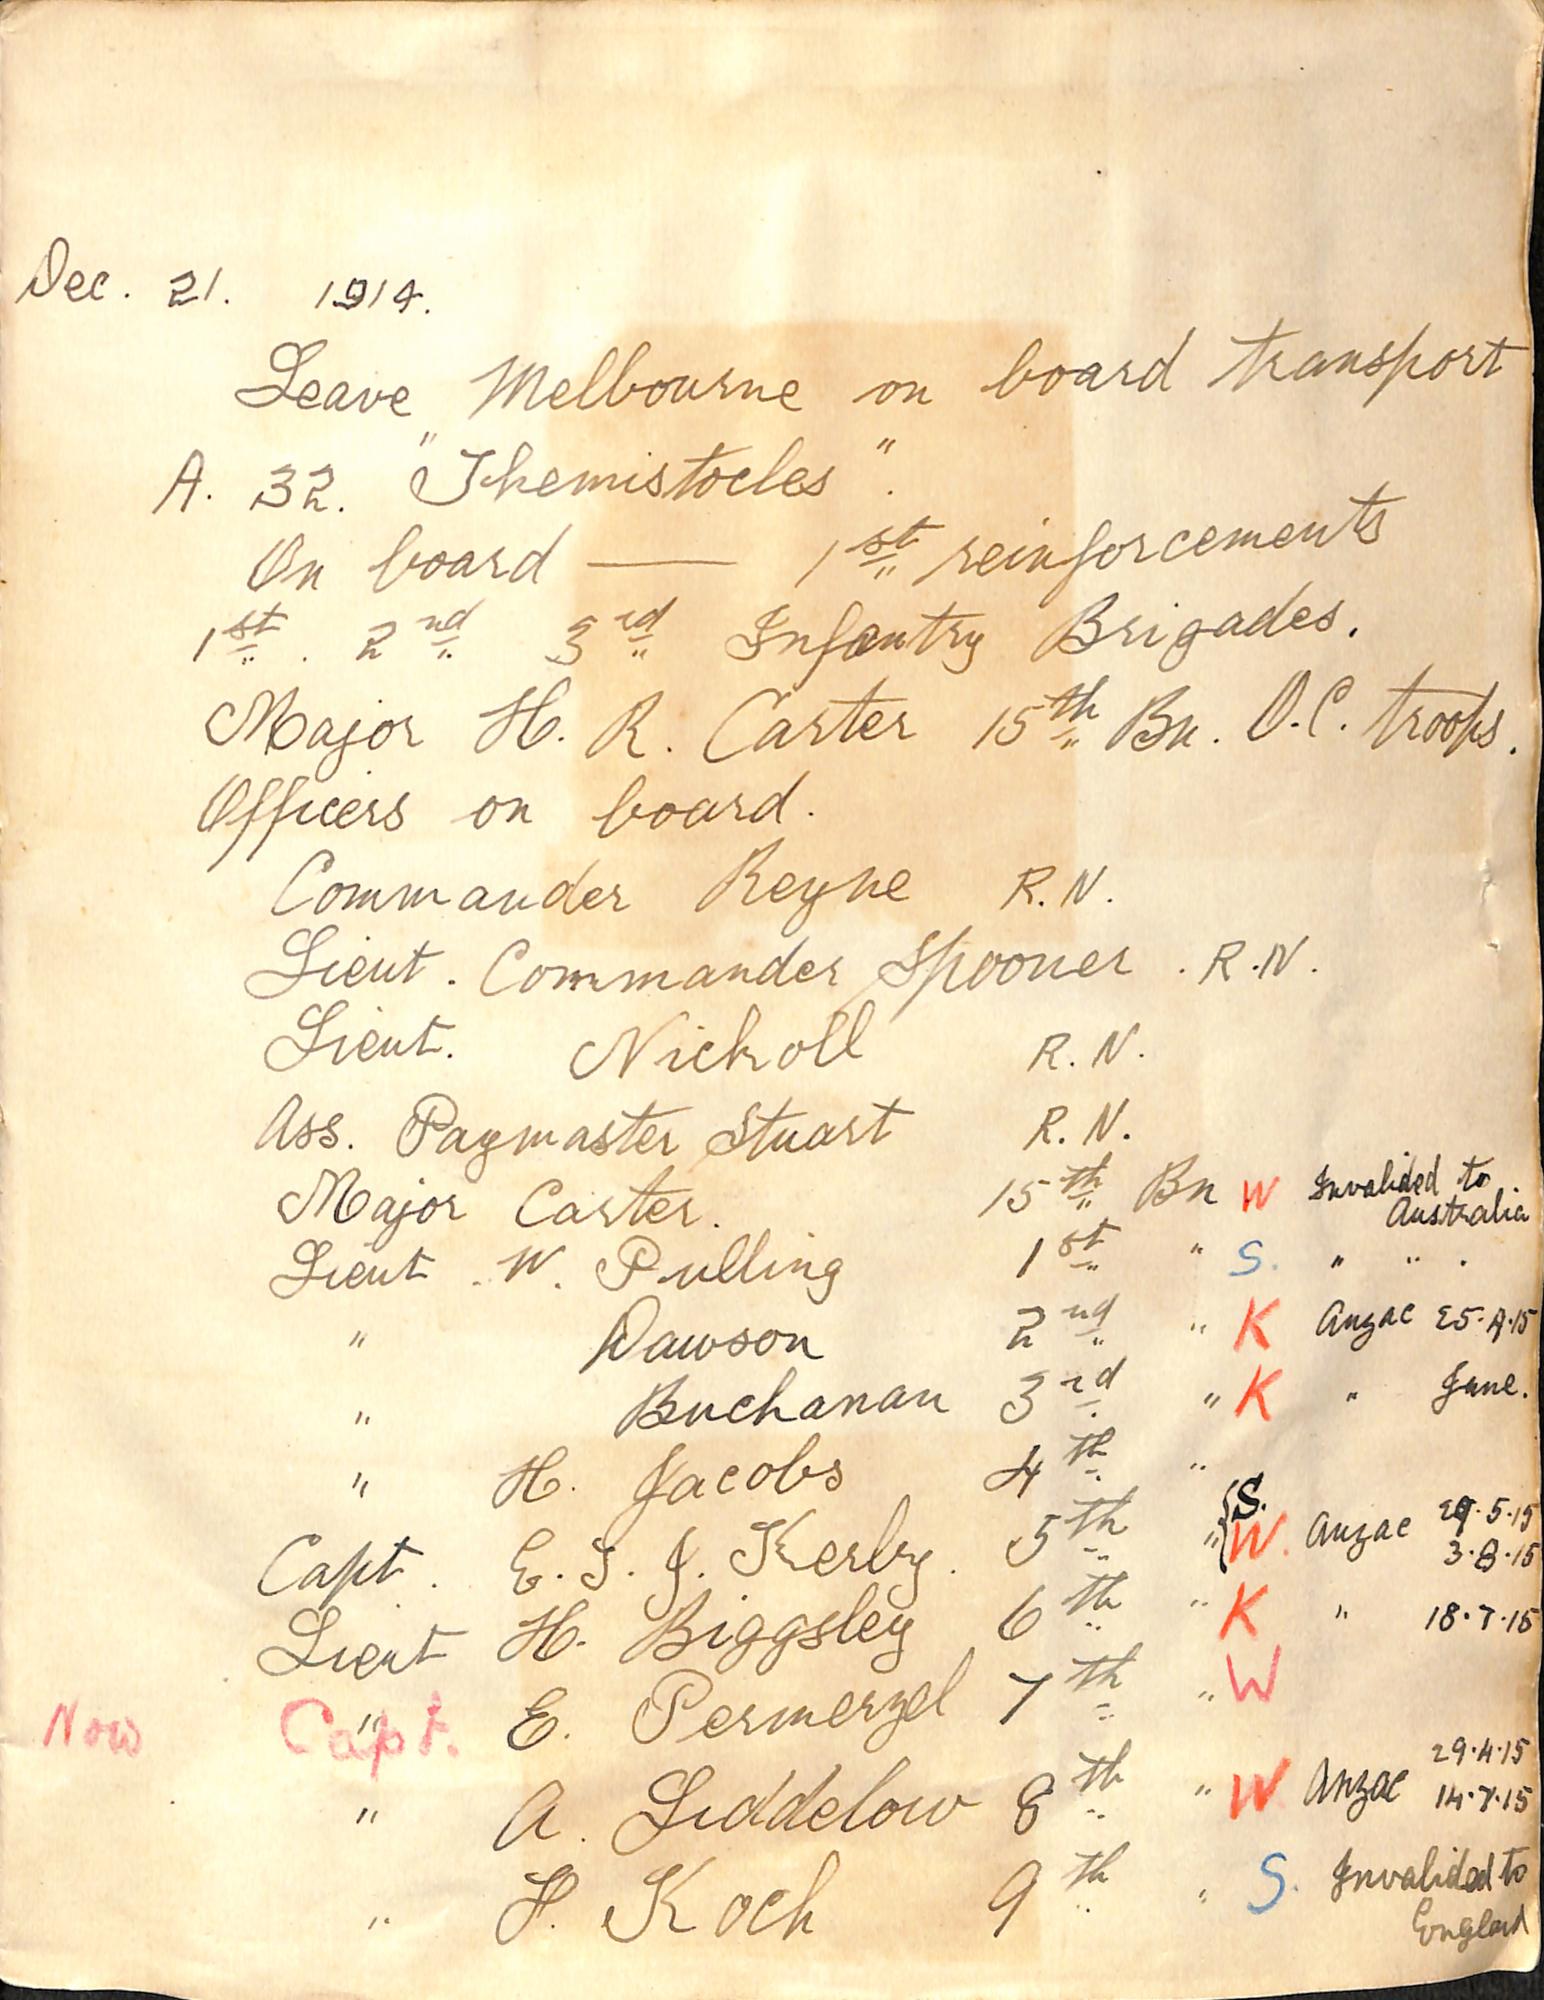 Dec. 21. 1914.
Leave Melbourne on board transport
A. 32. "Themistocles".
On board —— 1st reinforcements
1st. 2nd 3rd Infantry Brigades.
Major H. R. Carter 15th Bn. O.C. troops.
Officers on board.
Commander Reyne R.N.
Lieut. Commander Spooner. R.N.
Lieut. Nickoll R.N.
Ass. Paymaster Stuart R.N.
Major Carter. 15th Bn W Invalided to Australia
Lieut. W. Pulling 1st " S. " " .
" Dawson 2nd " K Anzac 25.4.15
" Buchanan 3rd " K " June.
" H. Jacobs 4th "
Capt. E. T. J. Kerby. 5th " { S. W. Anzac 29.5.15 3.8.15
Lieut H. Biggsley 6th " K " 18.7.15
Now Capt. " E. Permezel 7th " W
" A. Liddelow 8th " W Anzac 29.4.15 14.7.15
" H. Koch 9th " S. Invalided to England